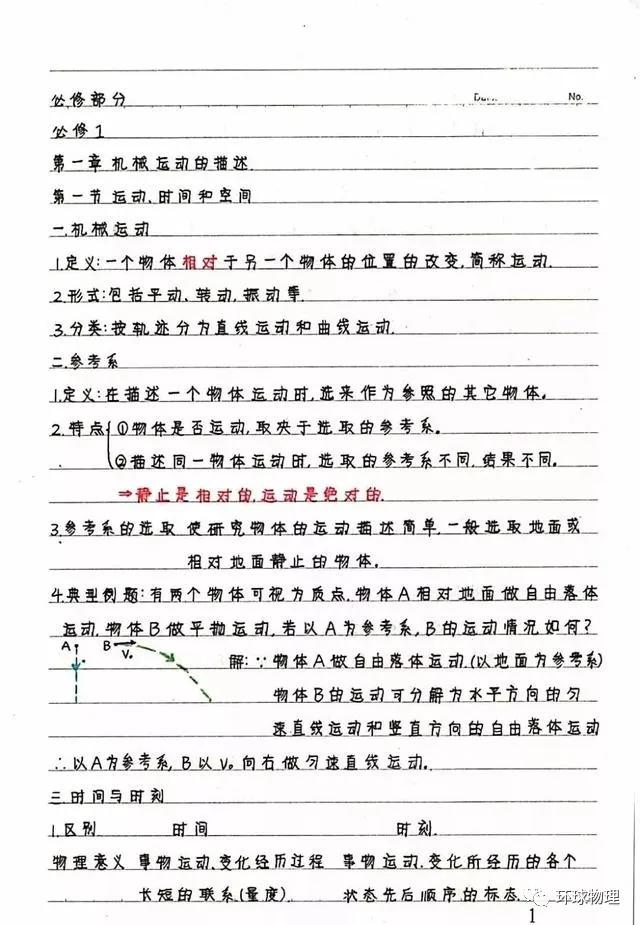 Date. No.
必修部分
必修1
第一章 机械运动的描述.
第一节 运动、时间和空间
一.机械运动
1.定义:一个物体相对于另一个物体的位置的改变,简称运动.
2.形式:包括平动、转动,振动等.
3.分类:按轨迹分为直线运动和曲线运动.
二.参考系
1.定义:在描述一个物体运动时,选来作为参照的其它物体。
2.特点 ①物体是否运动,取决于选取的参考系。
②描述同一物体运动时,选取的参考系不同,结果不同.
⇒静止是相对的,运动是绝对的.
3.参考系的选取 使研究物体的运动描述简单,一般选取地面或
相对地面静止的物体.
4.典型例题:有两个物体可视为质点,物体A相对地面做自由落体
运动,物体B做平抛运动,若以A为参考系,B的运动情况如何?
A B V₀ 解:∵物体A做自由落体运动.(以地面为参考系)
物体B的运动可分解为水平方向的匀
速直线运动和竖直方向的自由落体运动
∴以A为参考系,B以V₀向右做匀速直线运动.
三.时间与时刻
1.区别 时间 时刻.
物理意义 事物运动、变化经历过程 事物运动.变化所经历的各个
长短的联系(量度). 状态先后顺序的标志
环球物理
1